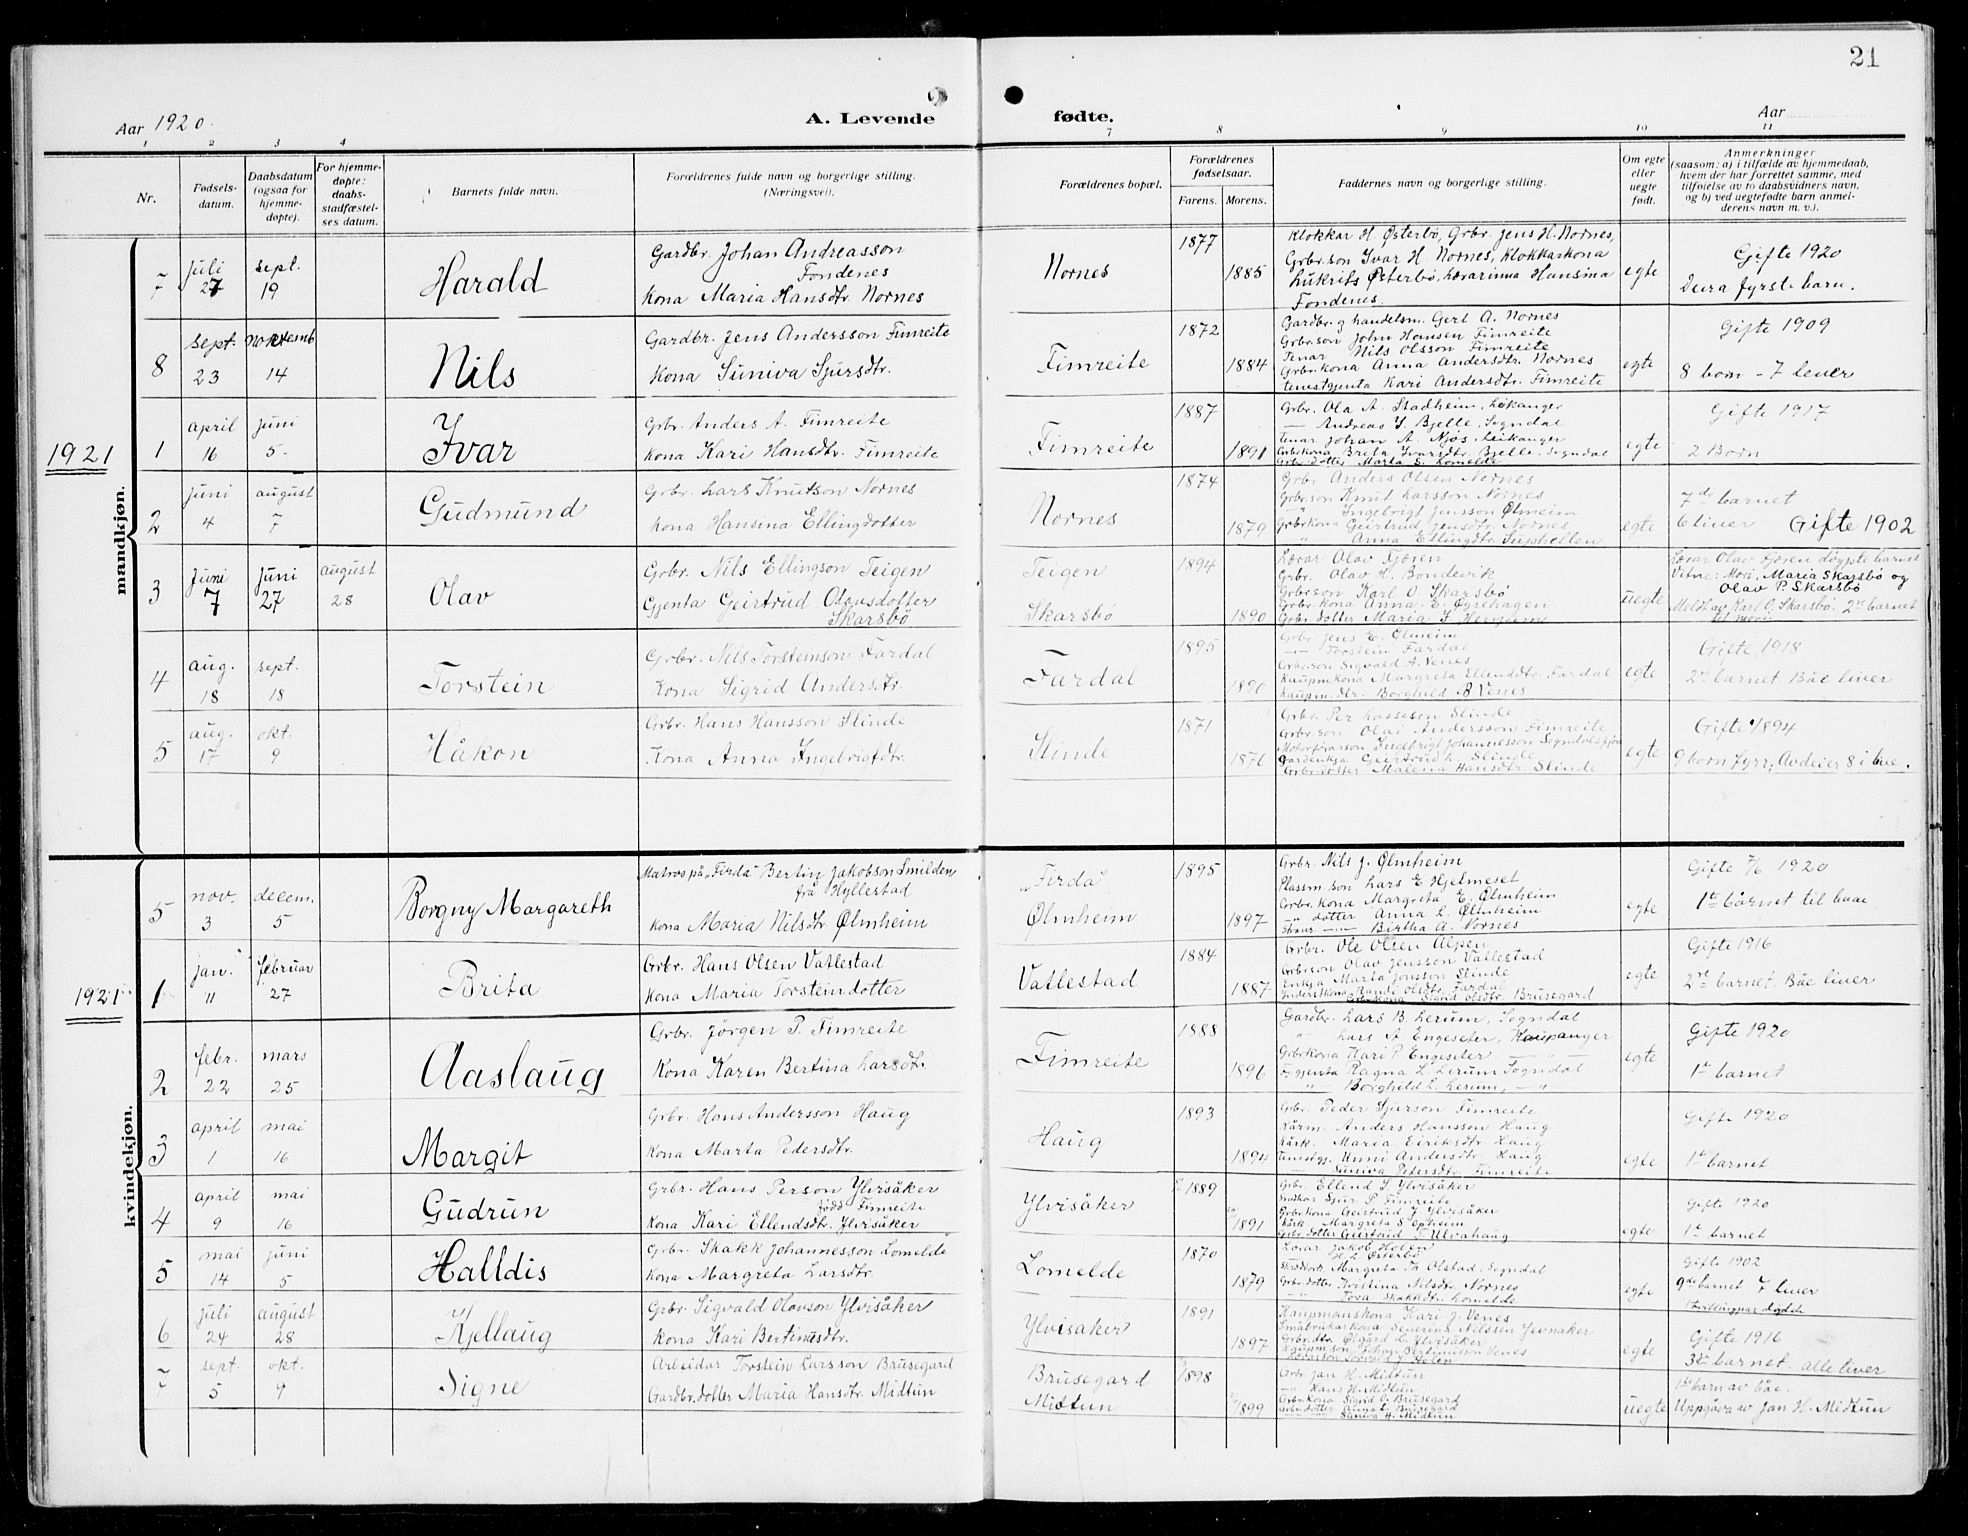 21
Aar 1920.
A. Levende
fødte.
Aar
1 2 3 4 7 8 9 10 11
Nr.
Fødsels-
datum.
Daabsdatum
(ogsaa for
hjemme-
døpte).
For hjemme-
døpte:
daabs-
stadfæstel-
ses datum.
Barnets fulde navn.
Forældrenes fulde navn og borgerlige stilling.
(Næringsvei).
Forældrenes bopæl.
Forældrenes
fødselsaar.
Farens. Morens.
Faddernes navn og borgerlige stilling.
Om egte
eller
uegte
født.
Anmerkninger
(saasom: a) i tilfælde av hjemmedaab,
hvem der har forrettet samme, med
tilføielse av to daabsvidners navn,
og b) ved uegtefødte barn anmel-
derens navn m. v.).
mandkjøn.
7
juli
27
sept.
19
Harald
Gardbr. Johan Andreasson
Fondenes
Kona Maria Hansdtr. Nornes
Nornes
1877
1885
Klokkar H. Østerbø, Grbr. Jens H. Nornes,
Grbr.son Ivar H. Nornes, Klokkarkona
Lukrits Østerbø, Lærarinna Hansina
Fondenes
egte
Gifte 1920
Deira fyrste barn.
8
sept.
23
14
Nils
Gardbr. Jens Andersson Fimreite
Kona Suniva Sjursdtr.
Fimreite
1872
1884
Gardbr. og handelsm. Gert A. Nornes
Grbr.son John Hansen Fimreite
Tenar Nils Olsson Fimreite
Grbr.kona Anna Andersdtr. Nornes
tenestgjenta Kari Andersdtr. Fimreite
egte
Gifte 1909
8 born - 7 lever
1921
1
april
16
juni
5
Ivar
Grbr. Anders A. Fimreite
Kona Kari Hansdtr. Fimreite
Fimreite
1887
1891
Grbr. Ola A. Stadheim, Leikanger
— Andreas I. Bjelle, Sogndal
Tenar Johan A. Njøs, Leikanger
Grbr.kona Brita Ivarsdtr. Bjelle, Sogndal
Grbr. dotter Marta S. Lomelde
egte
Gifte 1917
2 Born
2
juni
4
august
7
Gudmund
Grbr. Lars Knutson Nornes
Kona Hansina Ellingdotter
Nornes
1874
1879
Grbr. Anders Olsen Nornes
Grbr.son Knut Larsson Nornes
" Ingebrigt Jensson Ølmeim
Grbr.kona Geirtrud Jensdtr. Nornes
" Anna Ellingdtr. Suphellen
egte
7de barnet
6 liver Gifte 1902
3
Juni
7
Juni
27
august
28
Olav
Grbr. Nils Ellingson Teigen
Gjenta Geirtrud Olavsdotter
Skarsbø
Teigen
Skarsbø
1894
1890
Lærar Olav Fjæren
Grbr. Olav H. Bondevik
Grbr.son Karl O. Skarsbø
Grbr.kona Anna E. Øyrehagen
Grbr. dotter Maria
uegte
Lærar Olav Fjæren døypte barnet
Vitne: Mor. Maria Skarsbø og
Olav P. Skarsbø
Meldt av Karl O. Skarsbø. 2net barnet
til mori.
4
aug.
18
sept.
18
Torstein
Grbr. Nils Torsteinson Fardal
Kona Sigrid Andersdtr.
Fardal
1895
1890
Grbr. Jens E. Ølmeim
—"— Torstein Fardal
Grbr.son Sigvald A. Venes
Kaupm.kona Margreta Ellendsdtr. Fardal
Kaupm. dtr. Borghild B. Venes
egte
Gifte 1918
2net barnet. Båe liver
5
aug.
17
okt.
9
Håkon
Grbr. Hans Hansson Slinde
Kona Anna Ingebrigtdtr.
Slinde
1871
1871
Grbr. Per Lasseson Slinde
Grbr. son Olai Andersson Fimreite
Ingebrigt Johannesson
Geirtrud Slinde
Grbr.dotter Malena Hansdtr. Slinde
egte
Gifte 1894
9 born fyrr; Av deier 8 i live.
kvindekjøn.
5
nov.
3
decem.
5
Borgny Margareth
Matros på „Firda" Bertin Jakobson Smilden,
frå Hyllestad
Kona Maria Nilsdtr. Ølmheim
„Firda"
Ølmheim
1895
1897
Grbr. Nils J. Ølmheim
Plassm. son Lars E. Hjelmeset
Grbr. Kona Margreta E. Ølmheim
" dotter Anna L. Ølmheim
—"— Birtha A. Nornes
egte
Gifte 7/6 1920
1te barnet til baae
1921
1
jan.
11
februar
27
Brita
Grbr. Hans Olsen Vatlestad
Kona Maria Torsteindotter
Vatlestad
1884
1887
Grbr. Ole Olsen Alpen
Grbr.son Olav Jensson Vatlestad
Enkja Marta Jonsson Slinde
Randi Olsdtr. Fardal
Grbr.kona Sigrid Olsdtr. Brusegard
egte
Gifte 1916
2net barnet. Båe liver
2
febr.
22
mars
25
Aaslaug
Grbr. Jørgen P. Fimreite
Kona Karen Bertina Larsdtr.
Fimreite
1888
1896
Gardbr. Lars B. Lerum, Sogndal
" Lars A. Engeseter, Kaupanger
Grbr.kona Kari P. Engeseter —"—
Ragna L. Lerum, Sogndal
—"— Borghild L. Lerum, —"—
egte
Gifte 1920
1te barnet
3
april
1
mai
16
Margit
Grbr. Hans Andersson Haug
Kona Marta Pedersdtr.
Haug
1893
1894
Grbr. Peder Sjurson Fimreite
Kårm. Anders Hansson Haug
Kårk. Maria Eiriksdtr. Haug
Tenestgj. Unni Andersdtr. Haug
— Suniva Petersdtr. Fimreite
egte
Gifte 1920
1te barnet
4
april
9
mai
16
Gudrun
Grbr. Hans Person Ylvisåker
fødd Fimreite
Kona Kari Ellendsdtr. Ylvisåker
Ylvisåker
1889
1891
Grbr. Ellend J. Ylvisåker
Sjur P. Fimreite
Grbr.kona Geirtrud J. Ylvisåker
Kårk. Margreta S. Opheim
Grbr. dotter Geirtrud Ulvahaug
egte
Gifte 1920
1te barnet
5
mai
14
juni
5
Halldis
Grbr. Skakk Johannesson Lomelde
Kona Margreta Larsdtr.
Lomelde
1870
1879
Lærar Jakob Holen
H. L. Østerbø
Margreta Th. Olstad, Sogndal
Grbr. dotter Kristina Nilsdtr. Nornes
Tora Skakkdtr. Lomelde
egte
Gifte 1902
9de barnet 7 liver
6
juli
24
august
28
Kjellaug
Grbr. Sigvald Olavson Ylvisåker
Kona Kari Bertinusdtr.
Ylvisaker
1891
1897
Kaupmanskona Kari J. Venes
Småbrukarkona Severina Nilssen Yvnaker
Grbr.dtr. Ølgård L. Ylvisåker
Kaupm.son Johan Bertinusson Venes
Holen
egte
Gifte 1916
3te barnet. alle liver
7
sept.
5
okt.
9
Signe
Arbeidar Torstein Larsson Brusegard
Gardbr.dotter Maria Hansdtr. Midtun
Brusegard
Midtun
1898
1899
Grbr. Jan H. Midtun
—"— Hans H. Midtun
Grbr.kona Sigrid O. Brusegard
Grbr.dotter Anna L. Brusegard
—"— Suniva H. Midtun
uegte
1te barn av båe.
Uppgåva av Jan H. Midtun